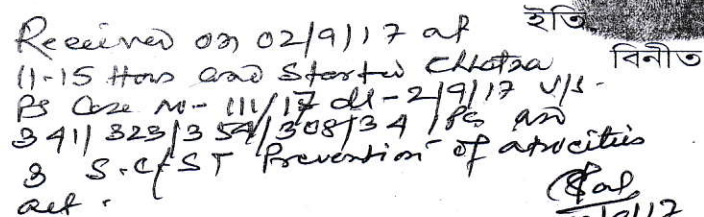 ইতি
বিনীত
Received on 02/9/17 at
11-15 Hors and Started Chhatna
PS Case No- 111/17 dt- 2/9/17 U/S-
341/323/354/308/34 IPC and
3 S.C/ST Prevention of atrocities
act.